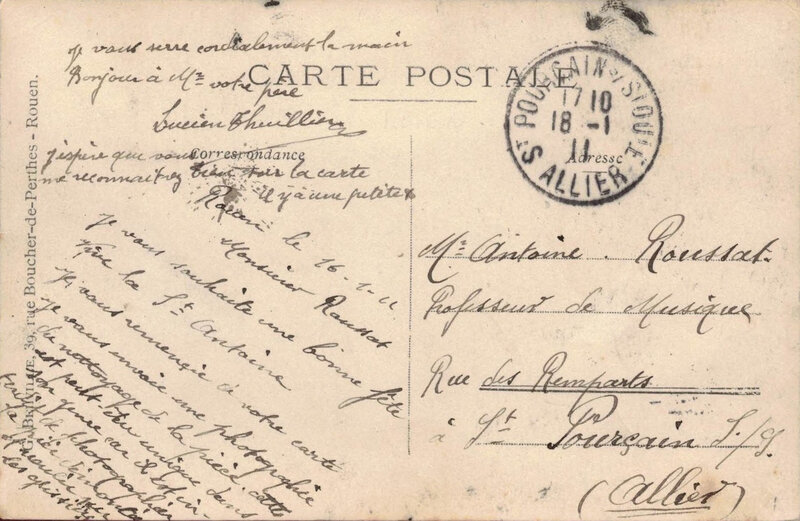 je vous serre cordialement la main
Bonjour à Mr votre père
Lucien Thuillier
CARTE POSTALE
j'espère que vous
me reconnaitrez bien sur la carte
il y a une petite x
Correspondance
Rouen le 16-1-11
Monsieur Roussat
Je vous souhaite une bonne fête
Vive la St Antoine
Je vous remercie à votre carte
Je vous envoie une photographie
du nettoyage de la pièce cette
est peut être unique dans
son genre car
photographier
BREVILLE, 39, rue Boucher-de-Perthes - Rouen.
ST POURÇAIN-S-SIOULE
17 10
18 -1
11
ALLIER
Adresse
Mr Antoine Roussat
Professeur de Musique
Rue des Remparts
à St Pourçain S/S
(Allier)